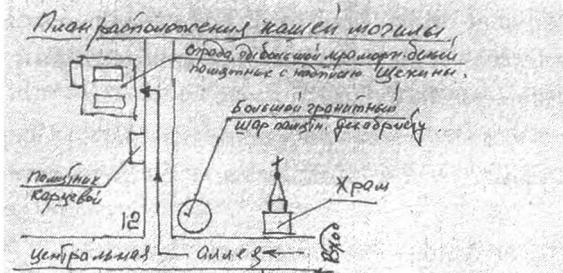 План расположения нашей могилы
ограда, небольшой мраморн. белый
памятник с надписью Щекины.
Большой гранитный
шар памятн. декабристу
Памятник
Карцевой
Храм
12
Вход
Центральная аллея